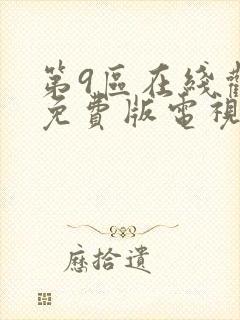 第9區在綫觀
免費版電視
歷拾遺